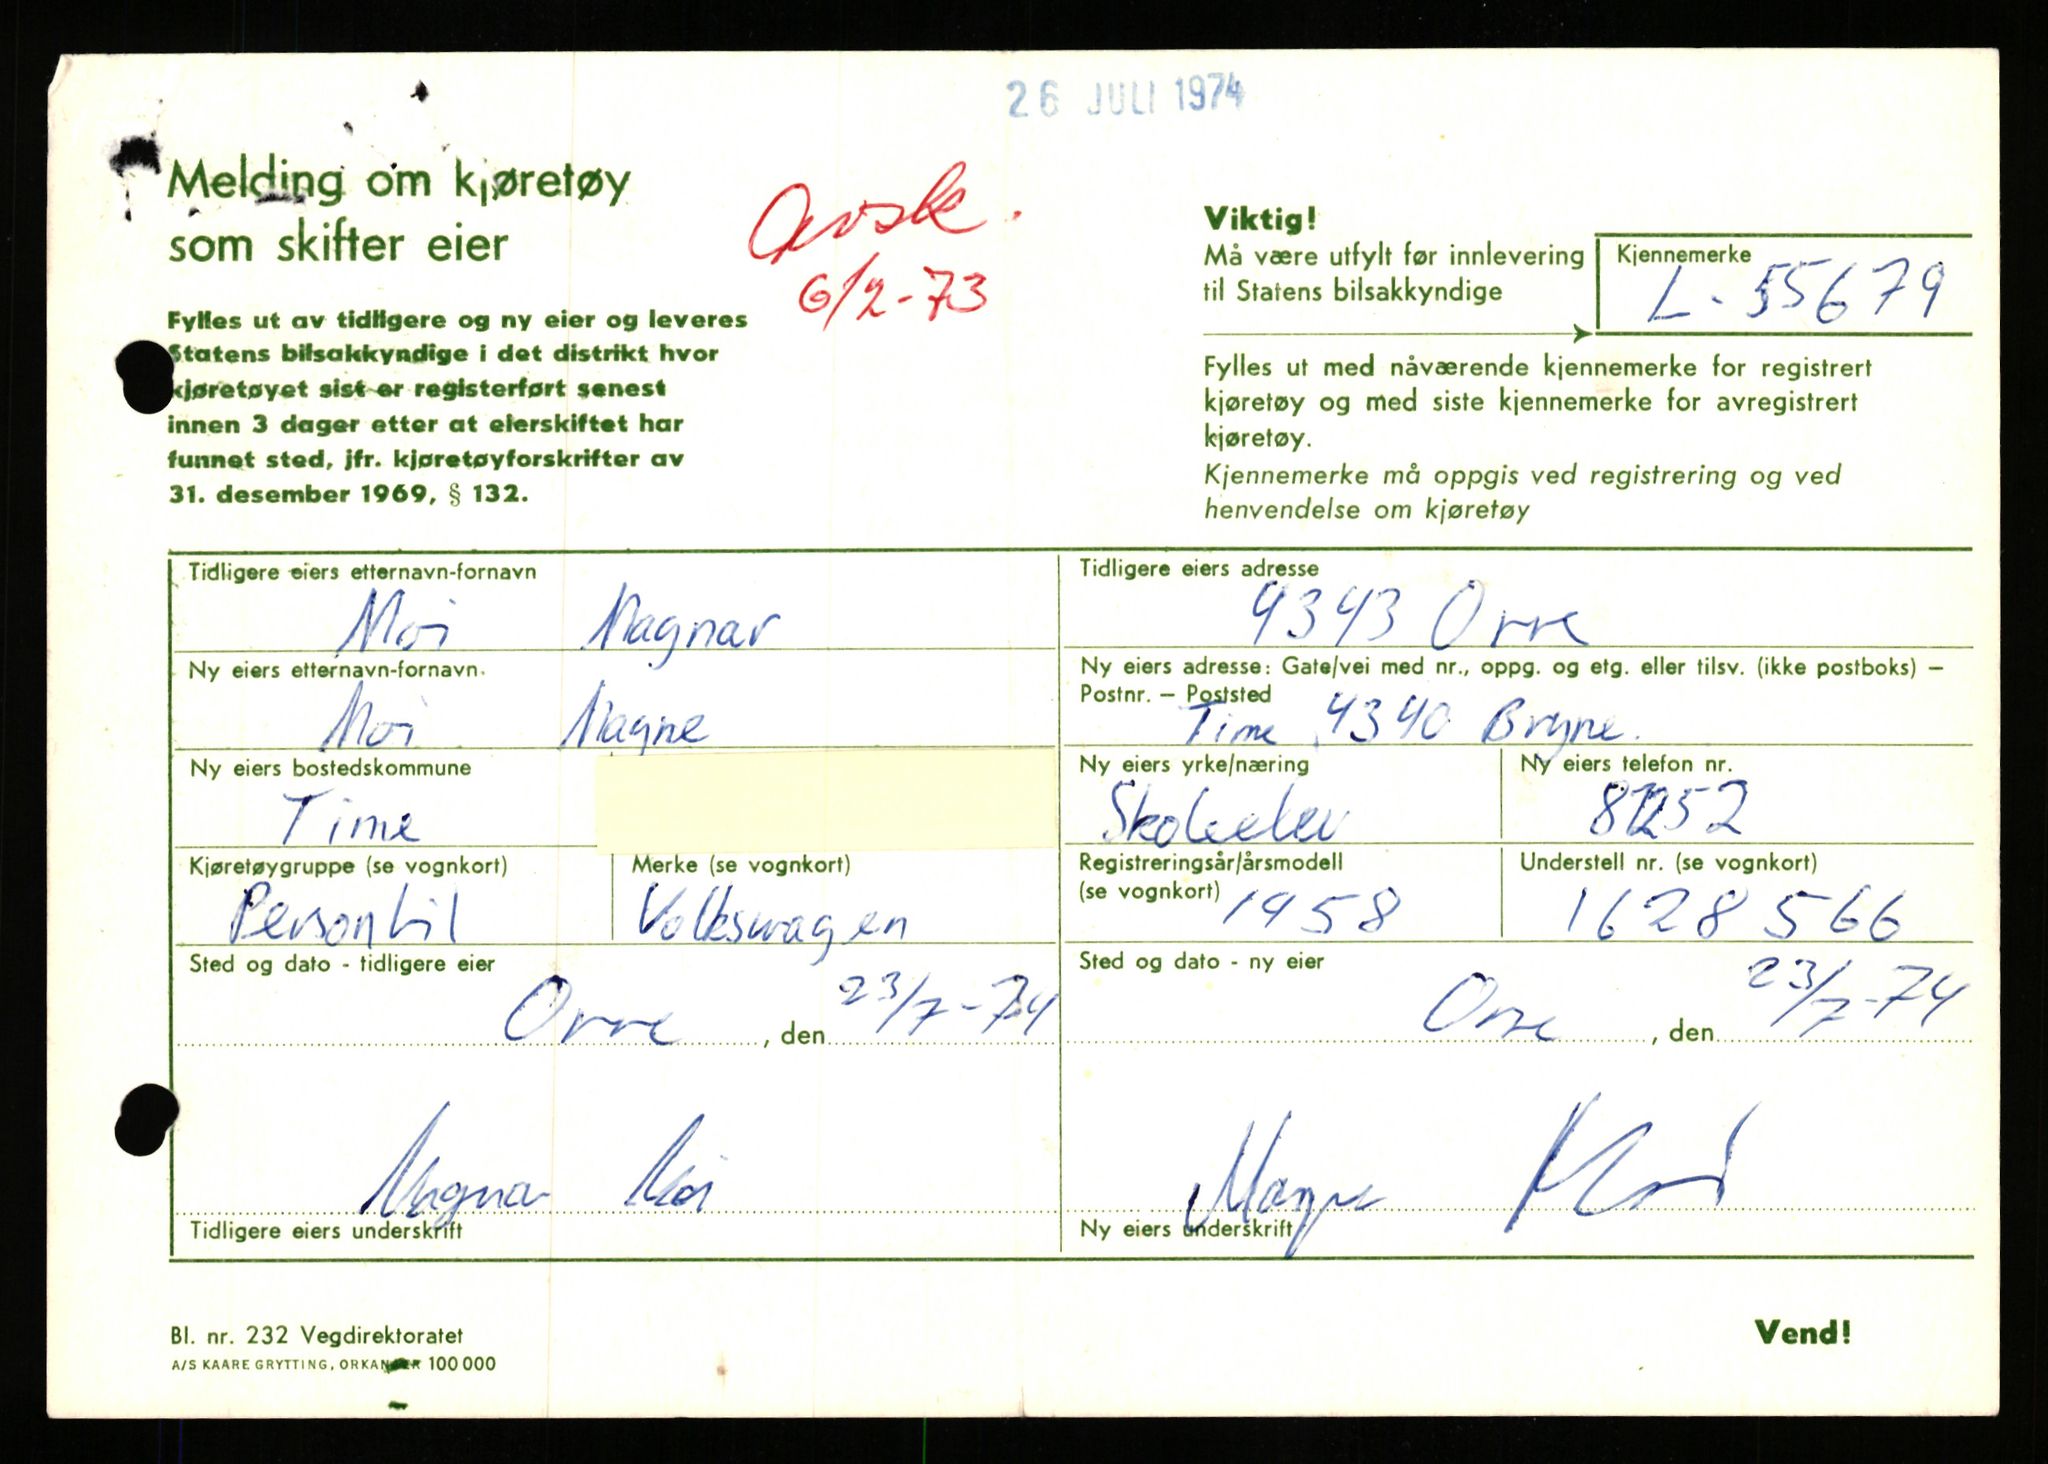 26 JULI 1974
Melding om kjøretøy
som skifter eier
Avsk.
6/2-73
Fylles ut av tidligere og ny eier og leveres
Statens bilsakkyndige i det distrikt hvor
kjøretøyet sist er registerført senest
innen 3 dager etter at eierskiftet har
funnet sted, jfr. kjøretøyforskrifter av
31. desember 1969, § 132.
Viktig!
Må være utfylt før innlevering
til Statens bilsakkyndige
Kjennemerke
L-55679
Fylles ut med nåværende kjennemerke for registrert
kjøretøy og med siste kjennemerke for avregistrert
kjøretøy.
Kjennemerke må oppgis ved registrering og ved
henvendelse om kjøretøy
Tidligere eiers etternavn-fornavn
Moi Magnar
Tidligere eiers adresse
4343 Orre
Ny eiers etternavn-fornavn.
Moi Magne
Ny eiers adresse: Gate/vei med nr., oppg. og etg. eller tilsv. (ikke postboks) –
Postnr. – Poststed
Time 4340 Bryne.
Ny eiers bostedskommune
Time
Ny eiers yrke/næring
Skoleelev
Ny eiers telefon nr.
Kjøretøygruppe (se vognkort)
Personbil
Merke (se vognkort)
Volkswagen
Registreringsår/årsmodell
(se vognkort)
1958
Understell nr. (se vognkort)
1628566
Sted og dato - tidligere eier
Orre, den 23/7-74
Sted og dato - ny eier
Orre, den 23/7-74
Magnar Moi
Tidligere eiers underskrift
Magne
Ny eiers underskrift
Bl. nr. 232 Vegdirektoratet
A/S KAARE GRYTTING, ORKANGER 100 000
Vend!